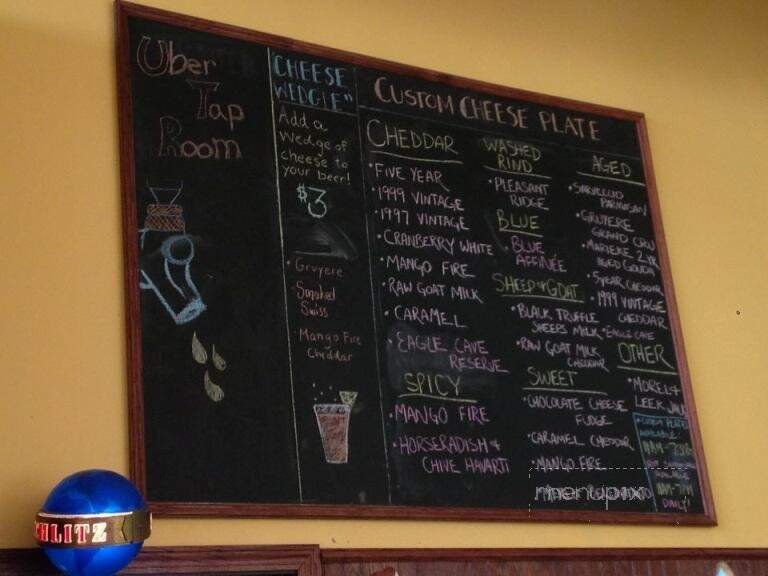 Uber
Tap
Room
"CHEESE
WEDGIE"
Add a
Wedge of
cheese to
your beer!
$3
• Gruyere
• Smoked
Swiss
• Mango Fire
Cheddar
CUSTOM CHEESE PLATE
CHEDDAR
• FIVE YEAR
• 1999 VINTAGE
• 1997 VINTAGE
• CRANBERRY WHITE
• MANGO FIRE
• RAW GOAT MILK
• CARAMEL
• EAGLE CAVE
RESERVE
SPICY
• MANGO FIRE
• HORSERADISH &
CHIVE HAVARTI
WASHED
RIND
• PLEASANT
RIDGE
BLUE
• BLUE
AFFINÉE
SHEEP & GOAT
• BLACK TRUFFLE
SHEEPS MILK
• RAW GOAT MILK
CHEDDAR
SWEET
• CHOCOLATE CHEESE
FUDGE
• CARAMEL CHEDDAR
• MANGO FIRE
AGED
• SARVECCHIO
PARMESAN
• GRUYERE
GRAND CRU
• MARIEKE 2 YR
AGED GOUDA
• 5 YEAR CHEDDAR
• 1999 VINTAGE
CHEDDAR
• EAGLE CAVE
OTHER
• MOREL &
LEEK JACK
11AM-7PM
DAILY!
menupix
SCHLITZ